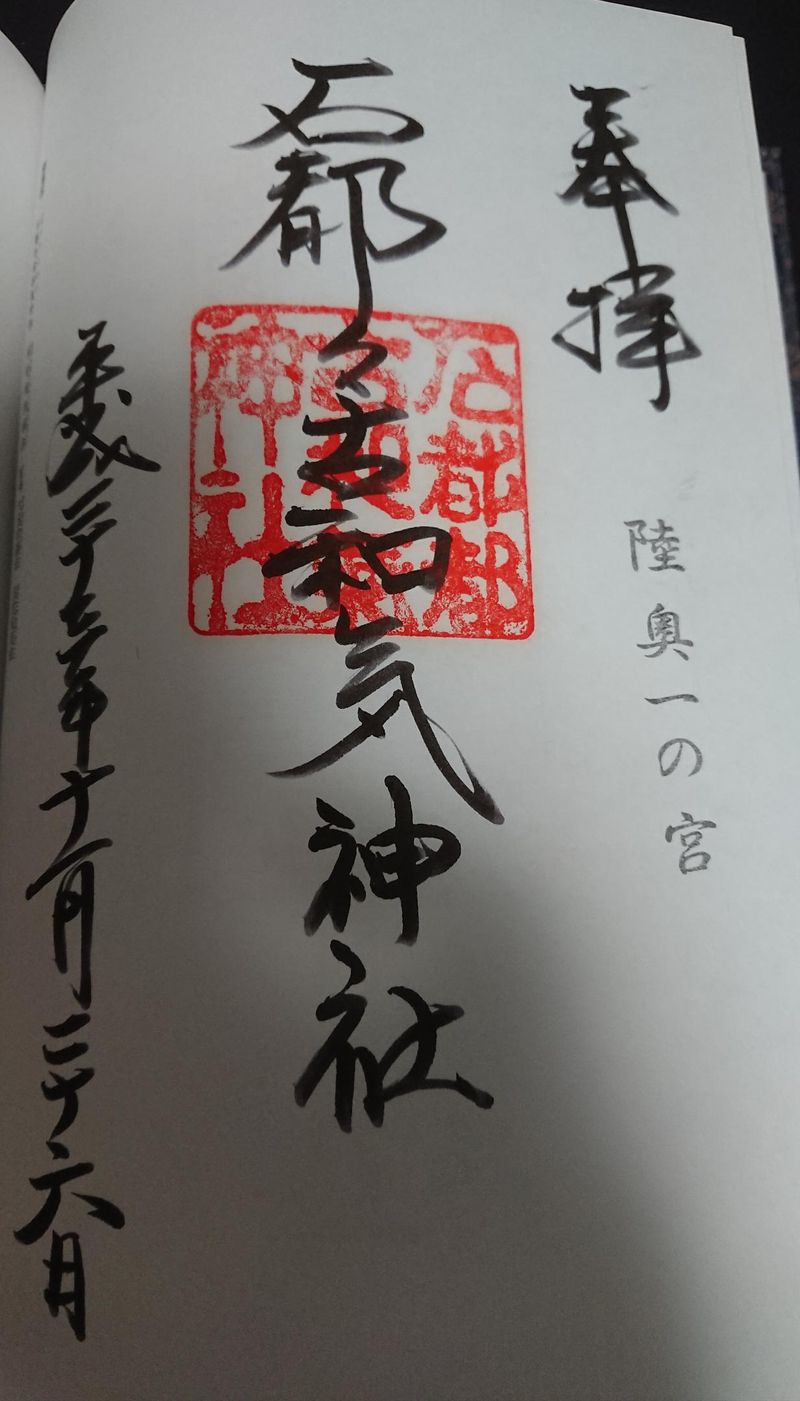 奉拝
陸奥一の宮
石都々古和気神社
石都都
神社
平成二十七年十一月二十六日